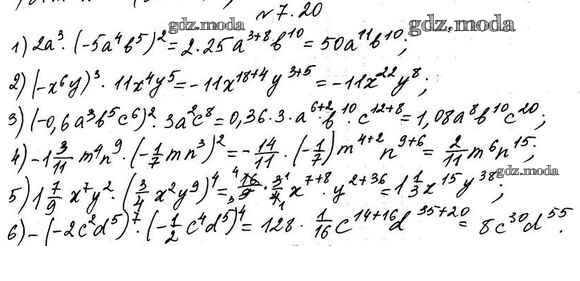 №7.20
gdz.moda
gdz.moda
1) 2a³·(-5a⁴b⁵)² = 2·25a³⁺⁸b¹⁰ = 50a¹¹b¹⁰;
2) (-x⁶y)³·11x⁴y⁵ = -11x¹⁸⁺⁴y³⁺⁵ = -11x²²y⁸;
3) (-0,6a³b⁵c⁶)²·3a²c⁸ = 0,36·3·a⁶⁺²·b¹⁰·c¹²⁺⁸ = 1,08a⁸b¹⁰c²⁰;
4) -1 3/11 m⁴n⁹·(-1/7 mn³)² = -14/11·(-1/7)m⁴⁺²n⁹⁺⁶ = 2/11 m⁶n¹⁵;
gdz.moda
5) 1 7/9 x⁷y²·(3/4 x²y⁹)⁴ = ⁴16/₃9·3¹/4₁ x⁷⁺⁸·y²⁺³⁶ = 1 1/3 x¹⁵y³⁸;
6) -(-2c²d⁵)⁷·(-1/2 c⁴d⁵)⁴ = 128·1/16 c¹⁴⁺¹⁶d³⁵⁺²⁰ = 8c³⁰d⁵⁵.